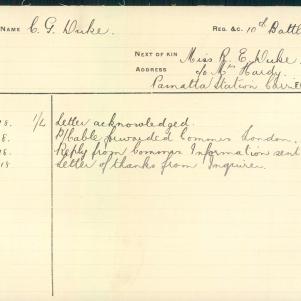 NAME C. G. Duke. REG. &C. 10th Batt
NEXT OF KIN Miss R. E. Duke.
ADDRESS c/o Mrs Hardy.
Station
8. 1/2 Letter acknowledged.
8. P/Cable forwarded Commr London.
18. Reply from Commr Information sent
18 Letter of thanks from Inquirer.